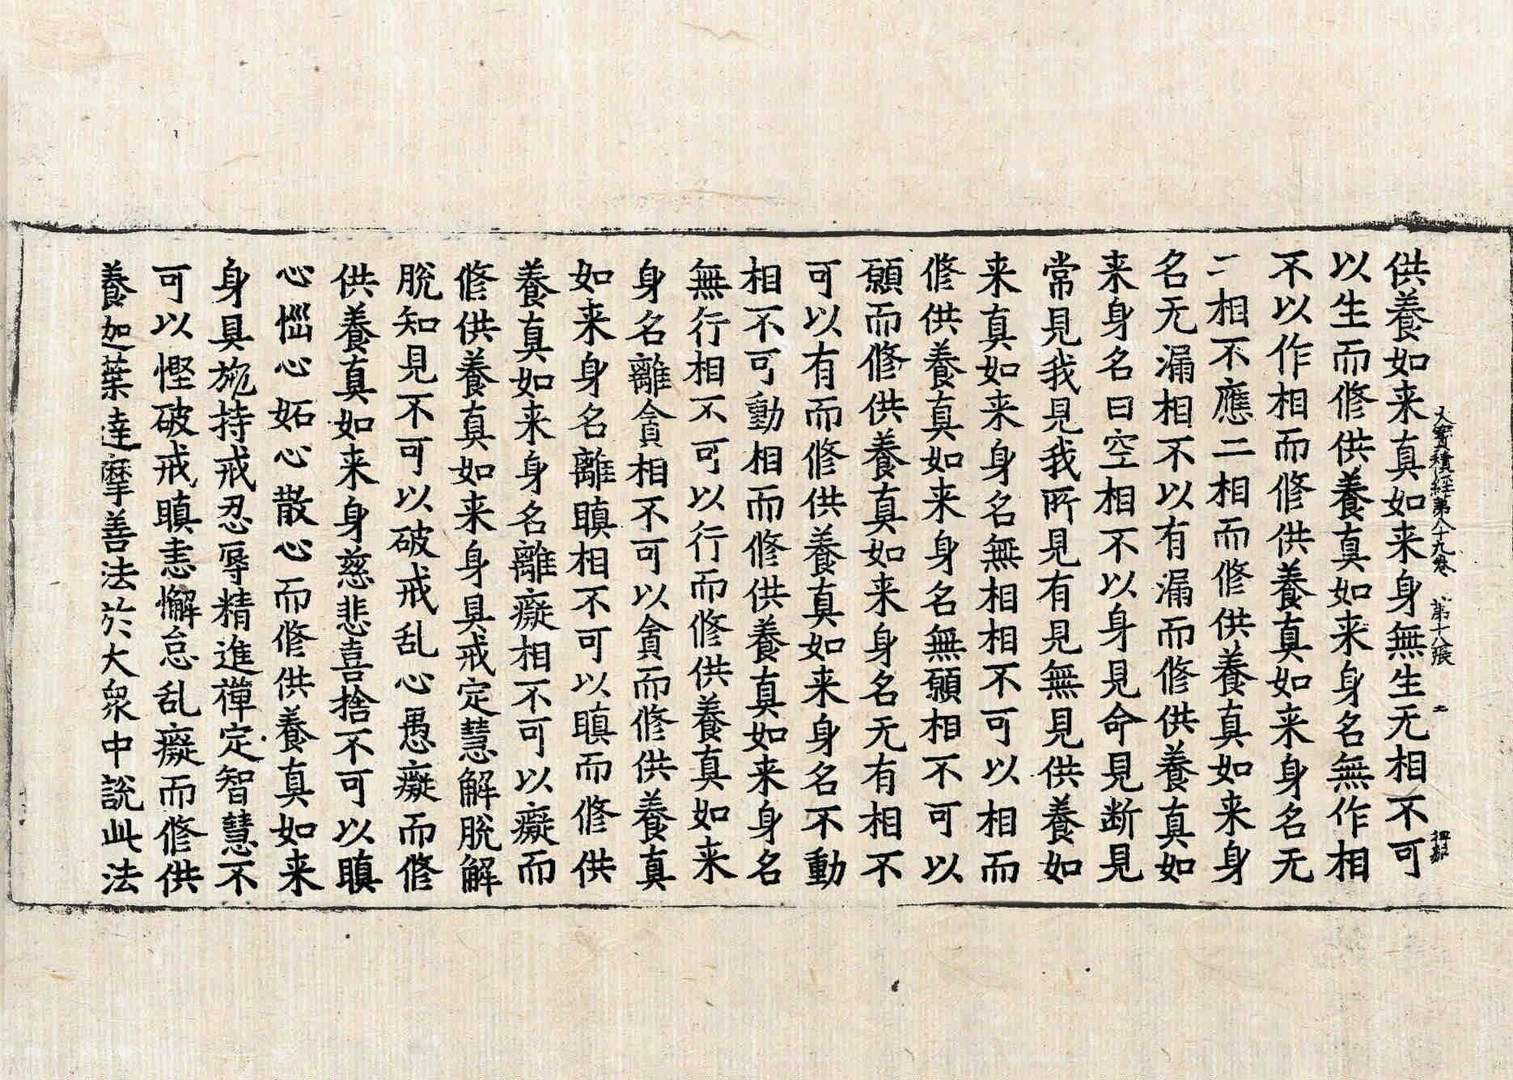 大寶積經第八十九卷 第十八張
供養如来真如来身無生无相不可
以生而修供養真如来身名無作相
不以作相而修供養真如来身名无
二相不應二相而修供養真如来身
名无漏相不以有漏而修供養真如
来身名曰空相不以身見命見断見
常見我見我所見有見無見供養如
来真如来身名無相相不可以相而
修供養真如来身名無願相不可以
願而修供養真如来身名无有相不
可以有而修供養真如来身名不動
相不可動相而修供養真如来身名
無行相不可以行而修供養真如来
身名離貪相不可以貪而修供養真
如来身名離瞋相不可以瞋而修供
養真如来身名離癡相不可以癡而
修供養真如来身具戒定慧解脱解
脱知見不可以破戒乱心愚癡而修
供養真如来身慈悲喜捨不可以瞋
心惱心妬心散心而修供養真如来
身具施持戒忍辱精進禅定智慧不
可以慳破戒瞋恚懈怠乱癡而修供
養迦葉達摩善法於大衆中說此法